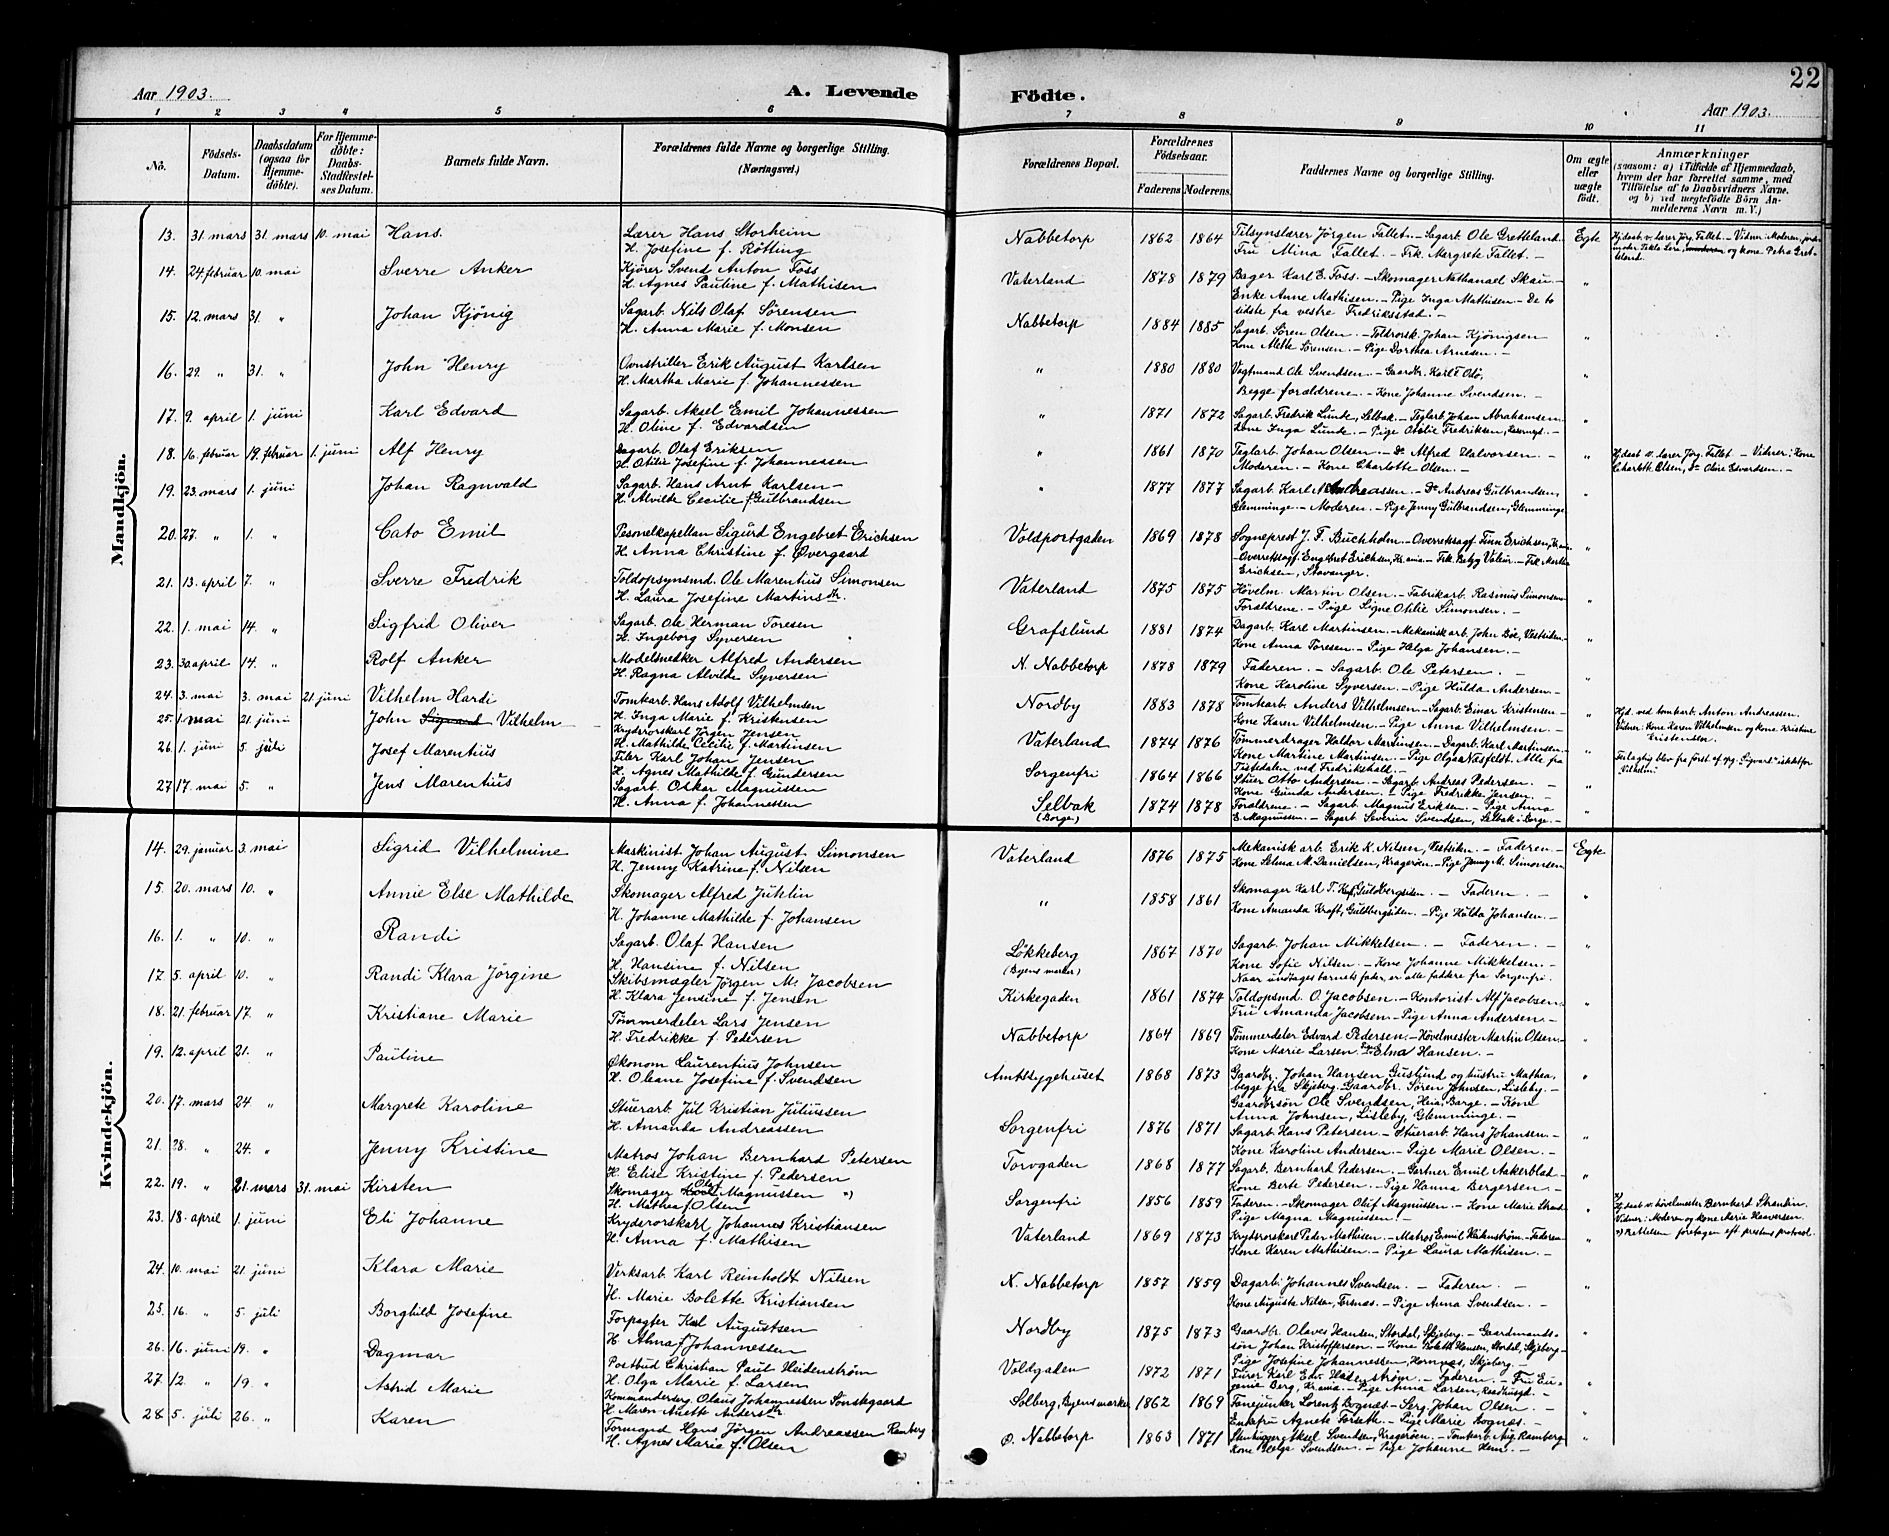 22
Aar 1903. A. Levende Födte. Aar 1903.
1 2 3 4 5 6 7 8 9 10 11
No. Födsels-Datum. Daabsdatum (ogsaa for Hjemme-döbte). For Hjemme-döbte: Daabs-Stadfæstel-ses Datum. Barnets fulde Navn. Forældrenes fulde Navne og borgerlige Stilling. (Næringsvei.) Forældrenes Bopæl. Forældrenes Födselsaar. Faderens Moderens. Faddernes Navne og borgerlige Stilling. Om ægte eller uægte födt. Anmærkninger (saasom: a) i Tilfælde af Hjemmedaab, hvem der har forrettet samme, med Tilföielse af to Daabsvidners Navne, og b) ved uægtefödte Börn An-melderens Navn m. V.)
Mandkjön.
13. 31. mars 31. mars 10. mai Hans. Lærer Hans Storheim Nabbetorp 1862 1864 Tilsynslærer Jörgen Fallet. - Sagarb. Ole Gretteland. Egte
H. Josefine f. Rötting Fru Mina Fallet. - Frk. Margrete Fallet. -
14. 24. februar 10. mai Sverre Anker Kjörer Svend Anton Foss Vaterland 1878 1879 Bager Karl E. Foss. - Skomager Nathanael Skau. - "
H. Agnes Pauline f. Mathisen Enke Anne Mathisen. - Pige Inga Mathisen - De to
sidste fra vestre Fredriksstad. -
15. 12. mars 31. " Johan Kjönig Sagarb. Nils Olaf Sörensen Nabbetorp 1884 1885 Sagarb. Sören Olsen. - Toldrorsk. Johan Kjönigsen "
H. Anna Marie f. Monsen Kone Mette Sörensen. - Pige Dorthea Arnesen. -
16. 29. " 31. " John Henry Ovnstriller Erik August Karlsen " 1880 1880 Vagtmand Ole Svendsen. - Gaardbr. Karl "
H. Martha Marie f. Johannessen Begge forældrene. - Kone Johanne Svendsen. -
17. 9. april 1. juni Karl Edvard Sagarb. Aksel Emil Johannessen " 1871 1872 Sagarb. Fredrik Lunde, Selbak. - Teglarb. Johan Abrahamsen. "
H. Oline f. Edvardsen Kone Inga Lunde. - Pige Otilie Fredriksen,
18. 16. februar 19. februar 1. juni Alf Henry Dagarb. Olaf Eriksen " 1861 1870 Teglarb. Johan Olsen. - Do Alfred Halvorsen. - " Hj.daab v. lærer Jörg. Fallet - Vidner: Kone
H. Otilie Josefine f. Johannessen Moderen. - Kone Charlotte Olsen. - Charlotte Olsen, Do Oline Edvardsen. -
19. 23. mars 1. juni Johan Ragnvald Sagarb. Hans Arnt Karlsen - " 1877 1877 Sagarb. Karl Andreassen. - Do Andreas Gulbrandsen, "
H. Alvilde Cecilie f. Gulbrandsen Glemminge. - Moderen. - Pige Jenny Gulbrandsen, Glemminge
20. 27. " 1. " Cato Emil Pesonelkapellan Sigurd Engebret Erichsen Voldportgaden 1869 1878 Sogneprest J. F. Buchholm. - Overretssagf. Finn Erichsen, "
H. Anna Christine f. Øvergaard Overretssagf. Engebret Erichsen, Kr.ania - Frk. Betzy - Frk. Martha
Erichsen, Stavanger.
21. 13. april 7. " Sverre Fredrik Toldopsynsmd. Ole Marentius Simonsen Vaterland 1875 1875 Hövelm. Martin Olsen. - Fabrikarb. Rasmus Simonsen "
H. Laura Josefine Martinsdtr. Forældrene. - Pige Signe Otilie Simonsen. -
22. 1. mai 14. " Sigfrid Oliver Sagarb. Ole Herman Toresen Grafslund 1881 1874 Dagarb. Karl Martinsen. - Mekanisk arb. John Böe, Vestsiden. "
H. Ingeborg Syversen Kone Anna Toresen. - Pige Helga Johansen. -
23. 30. april 14. " Rolf Anker Modelsnedker Alfred Andersen N. Nabbetorp 1878 1879 Faderen. - Sagarb. Ole Petersen. - "
H. Ragna Alvilde Syversen Kone Karoline Syversen. - Pige Hulda Andersen. -
24. 3. mai 3. mai 21. juni Vilhelm Hardi Tomtkarb. Hans Adolf Vilhelmsen Nordby 1883 1878 Tomtkarb. Anders Vilhelmsen - Sagarb. Einar Kristensen - " Hjd. ved tomtkarb. Anton Andreassen.
H. Inga Marie f. Kristensen Kone Karen Vilhelmsen. - Pige Anna Vilhelmsen. - Vidner: Kone Karen Vilhelmsen og kone Kristine
25. 1. mai 21. juni John Sigvard Vilhelm Krydsrorskarl Jörgen Jensen Vaterland 1874 1876 Tömmerdrager Haldor Martinsen. - Dagarb. Karl Martinsen. "
H. Mathilde Cecilie f. Martinsen Kone Martine Martinsen. - Pige Olga Aasfeldt. Alle fra
Tistedalen ved Fredrikshald. -
26. 1. juni 5. juli Josef Marentius Filer Karl Johan Jensen Sorgenfri 1864 1866 Stuer Otto Andersen. - Sagarb. Andreas Pedersen. - "
H. Agnes Mathilde f. Gundersen Kone Gunda Andersen. - Pige Fredrikke Jensen. -
27. 17. mai 5. " Jens Marentius Sagarb. Oskar Magnussen Selbak (Borge) 1874 1878 Forældrene. - Sagarb. Magnus Eriksen. - Pige Anna "
H. Anna f. Johannessen E. Magnussen. - Sagarb. Severin Svendsen, Selbak i Borge. -
Kvindekjön.
14. 29. januar 3. mai Sigrid Vilhelmine Maskinist Johan August Simonsen Vaterland 1876 1875 Mekanisk arb. Erik K. Nilsen, Vestsiden. - Faderen. - Egte
H. Jenny Katrine f. Nilsen Kone Selma M. Danielsen, Kragerøen. - Pige Jenny M. Simonsen
15. 20. mars 10. " Annie Else Mathilde Skomager Alfred Juhlin " 1858 1861 Skomager Karl T. Kraft, Guldbergsiden. - Faderen. - "
H. Johanne Mathilde f. Johansen Kone Amanda Kraft, Guldbergsiden. - Pige Hulda Johansen. -
16. 1. " 10. " Randi Sagarb. Olaf Hansen Lökkeberg (Byens marker) 1867 1870 Sagarb. Johan Mikkelsen. - Faderen. - "
H. Hansine f. Nilsen Kone Sofie Nilsen. - Kone Johanne Mikkelsen. -
Naar undtages barnets fader, er alle faddere fra Sorgenfri. -
17. 5. april 10. " Randi Klara Jörgine Skibsmægler Jörgen M. Jacobsen Kirkegaden 1861 1874 Toldopsmd. O. Jacobsen. - Kontorist Alf Jacobsen. "
H. Klara Jensine f. Jensen Fru Amanda Jacobsen. - Pige Anna Andersen. -
18. 21. februar 17. " Kristiane Marie Tömmerdeler Lars Jensen Nabbetorp 1864 1869 Tömmerdeler Edvard Pedersen - Hövelmester Martin Olsen. "
H. Fredrikke f. Pedersen Kone Marie Larsen. Pige Elna Hansen. -
19. 12. april 21. " Pauline Økonom Laurentius Johnsen Amtssygehuset 1868 1873 Gaardbr. Johan Hansen Guslund og hustru Mathea, "
H. Oleane Josefine f. Svendsen begge fra Skjeberg. Gaardbr. Sören Johnsen, Lisleby. -
Gaardbrsön Ole Svendsen, Heia, Borge. - Kone
Anna Johnsen, Lisleby, Glemminge. -
20. 17. mars 24. " Margrete Karoline Stuerarb. Jul Kristian Juliussen Sorgenfri 1876 1871 Sagarb. Hans Petersen. - Stuerarb. Hans Johansen. - "
H. Amanda Andreassen Kone Karoline Andersen. - Pige Marie Olsen. -
21. 28. " 24. " Jenny Kristine Matros Johan Bernhard Petersen Torvgaden 1868 1877 Sagarb. Bernhard Pedersen. - Gartner Emil Aakerblad. "
H. Elise Kristine f. Pedersen Kone Berte Pedersen. - Pige Hanna Bergersen. -
22. 19. " 21. mars 31. mai Kirsten Skomager Olaf Magnussen *) Sorgenfri 1856 1859 Faderen. - Skomager Oluf Magnussen. - Kone Marie Strand " Hj.daab v. hövelmester Bernhard Strandin.
H. Mathea f. Olsen Pige Magna Magnussen. - Vidner: Moderen og kone Marie Haavorsen.
*) Rettelsen foretagen eft. prestens protocol.
23. 18. april 1. juni Eli Johanne Krydsrorskarl Johannes Kristiansen Vaterland 1869 1873 Krydsrorskarl Peder Mathisen. - Matros Emil Hidenström. - Faderen "
H. Anna f. Mathisen Kone Karen Mathisen. - Pige Laura Mathisen. -
24. 10. mai 21. juni Klara Marie Verksarb. Karl Reinholdt Nilsen N. Nabbetorp 1857 1859 Dagarb. Johannes Svendsen. - Faderen. - "
H. Marie Bolette Kristiansen Kone Augusta Nilsen, Torsnæs. - Pige Anna Svendsen. -
25. 16. " 5. juli Borghild Josefine Forpagter Karl Augustsen Nordby 1875 1873 Gaardbr. Olaves Hansen, Stordal, Skjeberg. - Gaardmands- "
H. Alma f. Johannessen sön Johan Kristoffersen. - Kone Bolette Hansen, Stordal, Skjeberg-
Pige Josefine Johannessen, Hornnæs, Skjeberg. -
26. 16. juni 19. " Dagmar Postbud Christian Paul Heidenström Voldgaden 1872 1871 Furer Karl Edv. Hidenström. - Faderen. - Fru Eu-
H. Olga Marie f. Larsen genie Berg, Kr.ania. - Pige Anna Larsen,
27. 12. " 19. " Astrid Marie Kommandersérg. Olaus Johannessen Sönskegaard Solberg, Byensmarker 1862 1869 Fanejunker Lorentz Bognæs - Serg. Johan Olsen. - "
H. Maren Anette Andersdtr. Enkefru Agnete Forseth. - Pige Marie Bognæs. -
28. 5. juli 26. " Karen Formand Hans Jörgen Andreassen Ramberg Ø. Nabbetorp 1863 1871 Stenhugger Aksel Svendsen, Kragerøen. - Tomtkarb. Aug. Ramberg "
H. Agnes Marie f. Olsen Kone Helga Svendsen. - Pige Johanne Hem. -